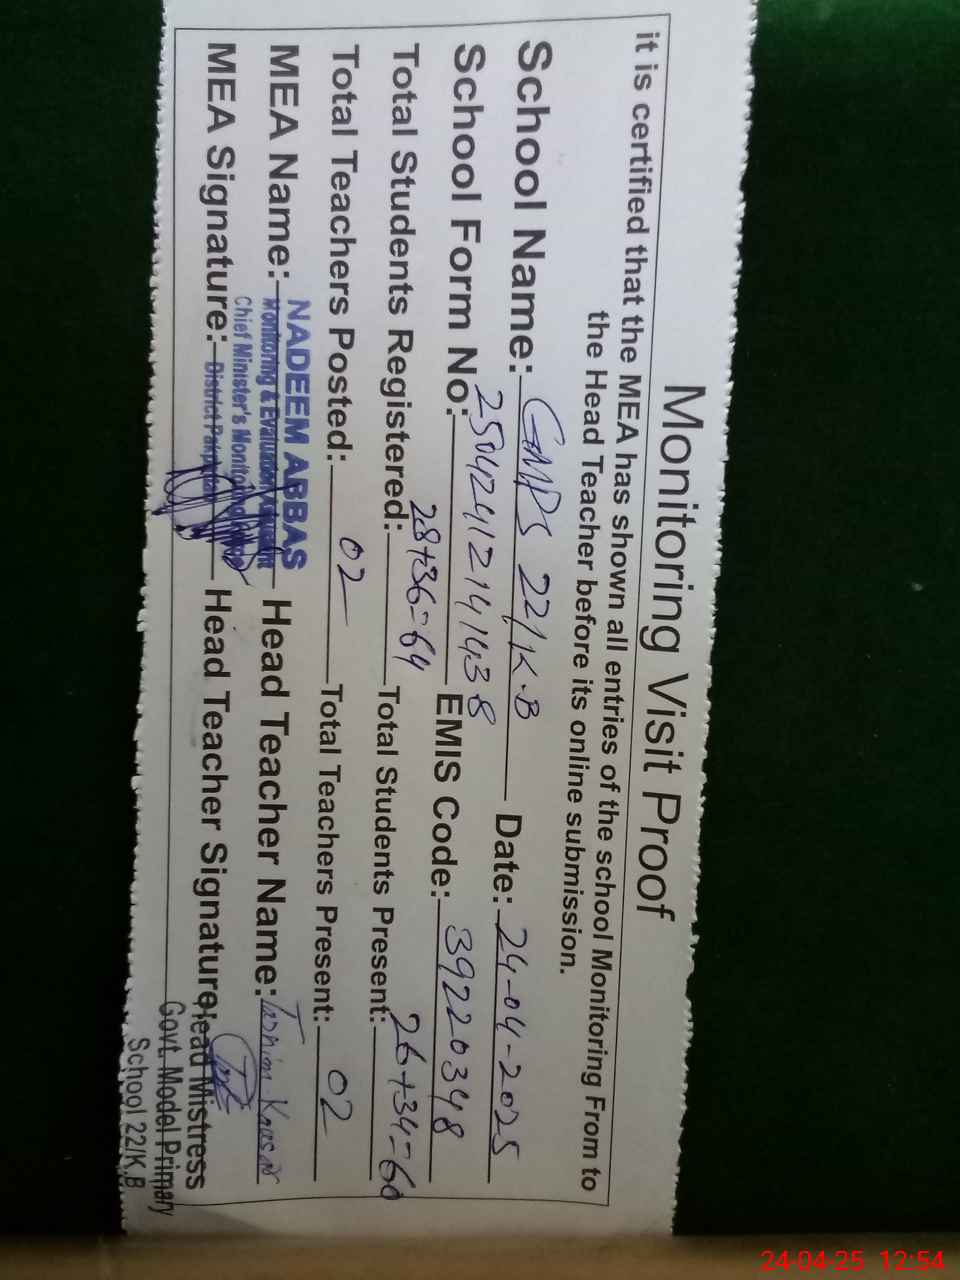 Monitoring Visit Proof
it is certified that the MEA has shown all entries of the school Monitoring From to
the Head Teacher before its online submission.
School Name: GMPS 22/K.B Date: 24-04-2025
School Form No: 25042412141438 EMIS Code: 39220348
Total Students Registered: 28+36=64 Total Students Present: 26+34=60
Total Teachers Posted: 02 Total Teachers Present: 02
MEA Name: NADEEM ABBAS Head Teacher Name: Tasnim Kausar
Monitoring & Evaluation
Chief Minister's Monitoring
MEA Signature: District Pakpattan Head Teacher Signature:
Head Mistress
Govt. Model Primary
School 22/K.B
24-04-25 12:54